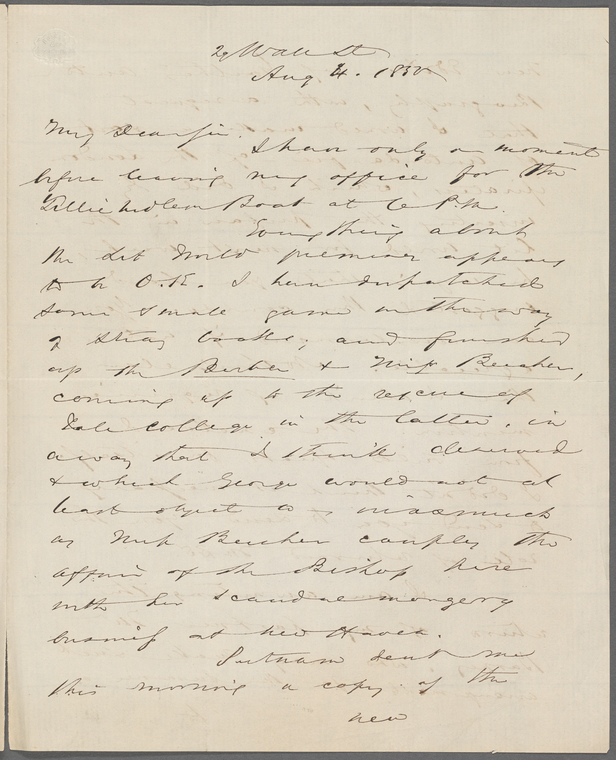 29 Wall St
Aug 4. 1850
My Dear Sir.
I have only a moment
before leaving my office for the
Boat at 6 P.M.
Everything about
the Lit World premises appears
to be O.K. I have dispatched
some small game in the way
of stray books; and finished
up the Berber & Miss Beecher,
coming up to the rescue of
Yale College in the latter, in
a way that I think deserved
& which George would not at
least object to – inasmuch
as Miss Beecher couples the
affair of the Bishop here
with her scandal mongery
business at New Haven.
Putnam sent me
this morning a copy of the
new